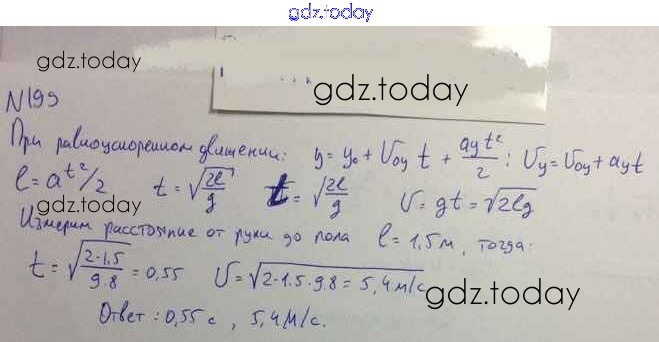 gdz.today
gdz.today
gdz.today
N199
При равноускоренном движении: y = y₀ + U₀y t + ayt²/2 ; Uy = U₀y + ayt
l = at²/2 t = √2l/g t = √2l/g U = gt = √2lg
gdz.today
Измерим расстояние от руки до пола l = 1,5м, тогда:
t = √2·1.5/9.8 = 0,55 U = √2·1.5·9.8 = 5,4 м/с
gdz.today
Ответ: 0,55 с, 5,4 м/с.